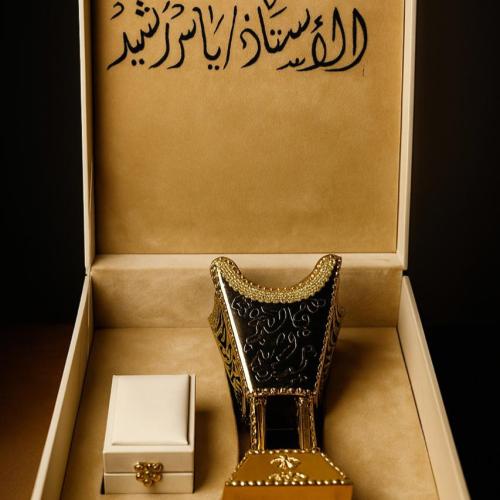 الأستاذ/ياسر رشيد